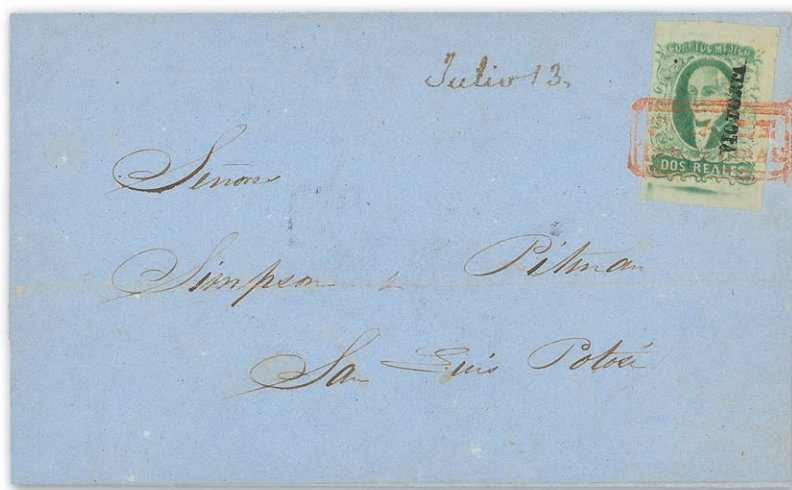 Julio 13.
CORREOS MEJICO
VICTORIA
DOS REALES
Señores
Simpson & Pitman
San Luis Potosí